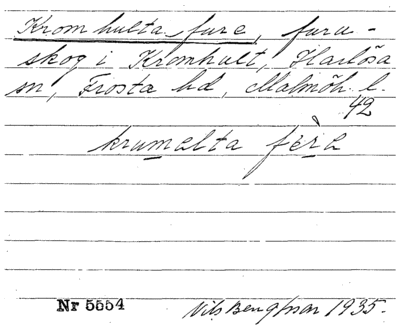 Kromhulta fure, furu-
skog i Kromhult, Harlösa
sn, Frosta hd, Malmöh. l.
42
krumalta fère
Nr 5554
Nils Bengtsson 1935.